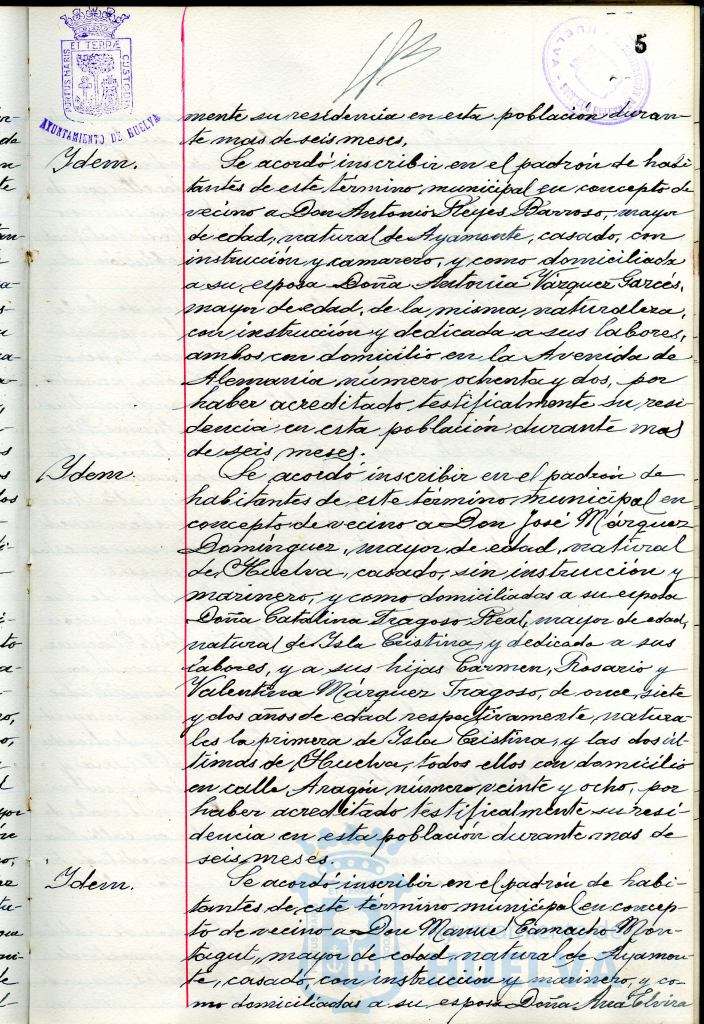 5
PORTUS MARIS ET TERRÆ CUSTODIA
AYUNTAMIENTO DE HUELVA
HUELVA
mente su residencia en esta población duran-
te mas de seis meses.
Idem.
Se acordó inscribir en el padrón de habi-
tantes de este término municipal en concepto de
vecino a Don Antonio Reyes Barroso, mayor
de edad, natural de Ayamonte, casado, con
instrucción y camarero, y como domiciliada
a su esposa Doña Antonia Vázquez Garcés,
mayor de edad, de la misma naturaleza,
con instrucción y dedicada a sus labores,
ambos con domicilio en la Avenida de
Alemania número ochenta y dos, por
haber acreditado testificalmente su resi-
dencia en esta población durante mas
de seis meses.
Idem.
Se acordó inscribir en el padrón de
habitantes de este término municipal en
concepto de vecino a Don José Márquez
Domínguez, mayor de edad, natural
de Huelva, casado, sin instrucción y
marinero, y como domiciliadas a su esposa
Doña Catalina Fragoso Real, mayor de edad,
natural de Isla Cristina, y dedicada a sus
labores, y a sus hijas Carmen, Rosario y
Valentina Márquez Fragoso, de once, siete
y dos años de edad respectivamente, natura-
les la primera de Isla Cristina, y las dos úl-
timas de Huelva, todos ellos con domicilio
en calle Aragón numero veinte y ocho, por
haber acreditado testificalmente su resi-
dencia en esta población durante mas de
seis meses.
Idem.
Se acordó inscribir en el padrón de habi-
tantes de este término municipal en concep-
to de vecino a Don Manuel Camacho Mon-
tagut, mayor de edad, natural de Ayamon-
te, casado, con instrucción y marinero, y co-
mo domiciliadas a su esposa Doña Ana Elvira
HUELVA